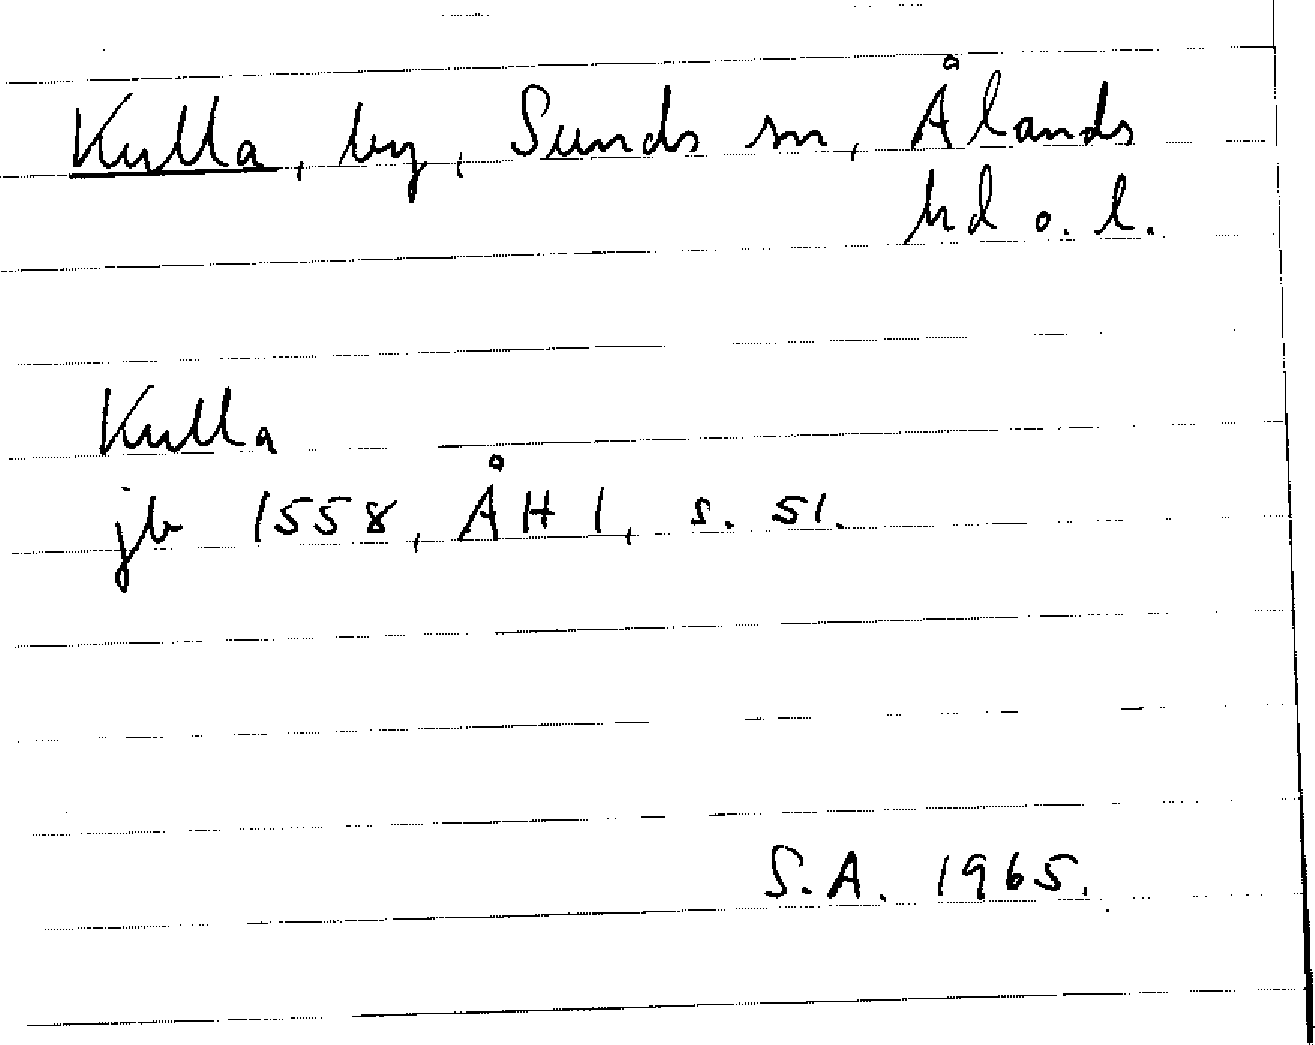 Kulla, by, Sunds sn, Ålands
hd o. l.
Kulla
jb 1558, ÅH 1, s. 51.
S.A. 1965.